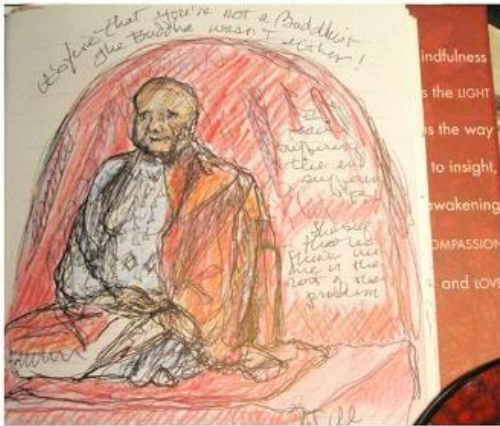 it's fine that you're not a Buddhist
the Buddha wasn't either!
suffering
the end
suffering
the belief
that we
think we
are is the
root of the
problem
indfulness
s the LIGHT
s the way
to insight,
wakening
OMPASSION
and LOVE